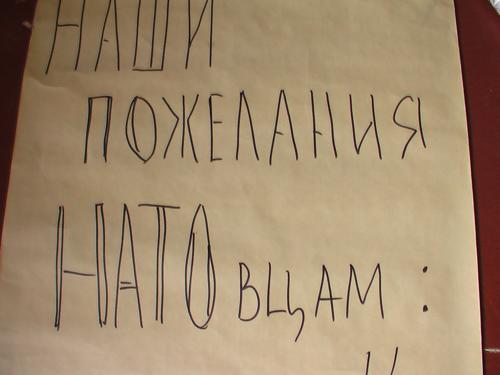 НАШИ
ПОЖЕЛАНИЯ
НАТОВЦАМ: